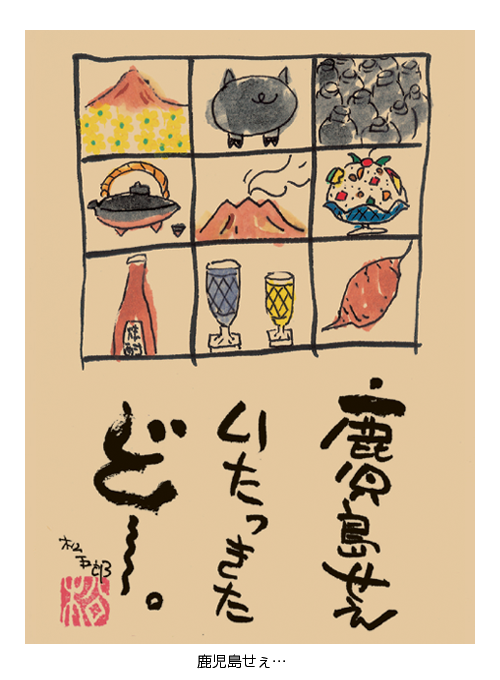 焼酎
鹿児島せぇ
いたっきた
どー〜。
松五郎
鹿児島せぇ…